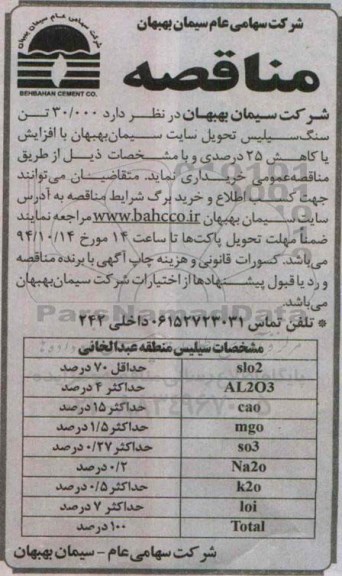 شرکت سهامی عام سیمان بهبهان
شرکت سهامی عام سیمان بهبهان
BEHBAHAN CEMENT CO.
مناقصه
شرکت سیمان بهبهان در نظر دارد ۳۰/۰۰۰ تن
سنگ سیلیس تحویل سایت سیمان بهبهان با افزایش
یا کاهش ۲۵ درصدی و با مشخصات ذیل از طریق
مناقصه عمومی خریداری نماید. متقاضیان می‌توانند
جهت کسب اطلاع و خرید برگ شرایط مناقصه به آدرس
سایت سیمان بهبهان www.bahcco.ir مراجعه نمایند
ضمناً مهلت تحویل پاکت‌ها تا ساعت ۱۴ مورخ ۹۴/۱۰/۱۴
می‌باشد. کسورات قانونی و هزینه چاپ آگهی با برنده مناقصه
و رد یا قبول پیشنهادها از اختیارات شرکت سیمان بهبهان
می‌باشد.
* تلفن تماس ۰۶۱۵۲۷۲۳۰۳۱ داخلی ۲۴۲
مشخصات سیلیس منطقه عبدالخانی
slo2 حداقل ۷۰ درصد
AL2O3 حداکثر ۴ درصد
cao حداکثر ۱۵ درصد
mgo حداکثر ۱/۵ درصد
so3 حداکثر ۰/۲۷ درصد
Na2o ۰/۲ درصد
k2o حداکثر ۰/۵ درصد
loi حداکثر ۷ درصد
Total ۱۰۰ درصد
شرکت سهامی عام - سیمان بهبهان
ParsNamadData